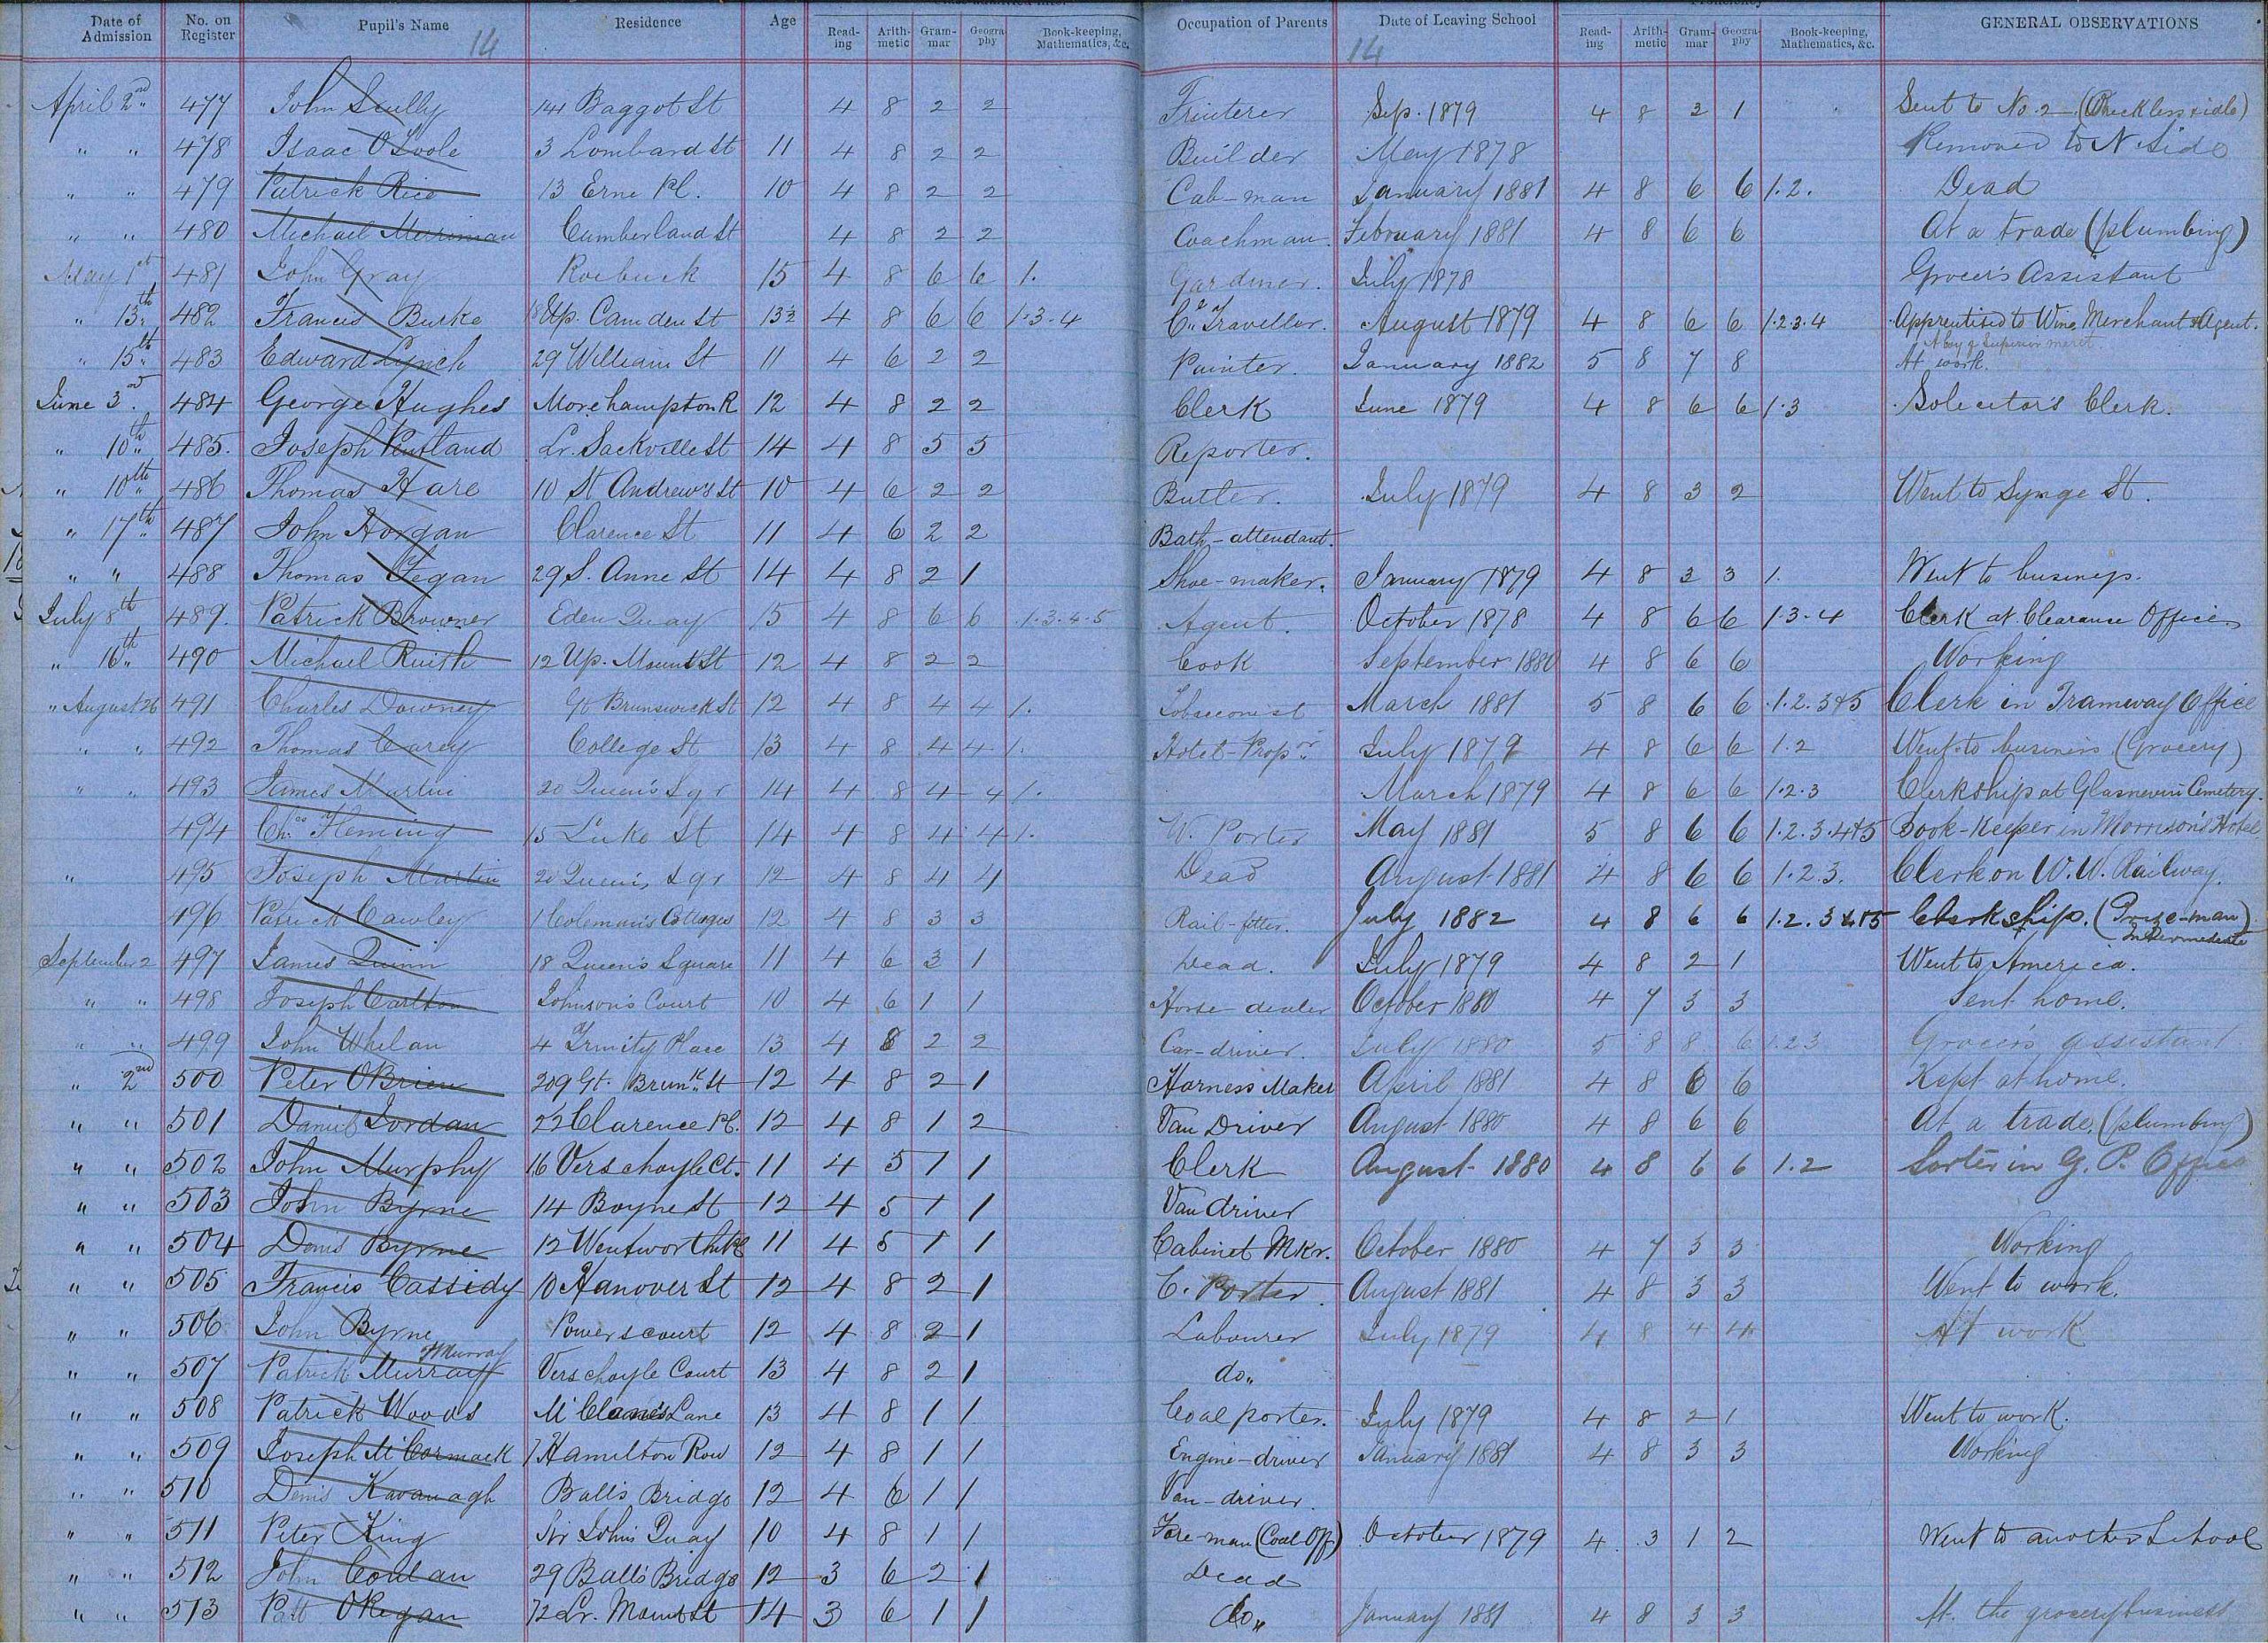 Date of Admission No. on Register Pupil's Name Residence Age Reading Arithmetic Grammar Geography Book-keeping, Mathematics, &c. Occupation of Parents Date of Leaving School Reading Arithmetic Grammar Geography Book-keeping, Mathematics, &c. GENERAL OBSERVATIONS
14 14
April 2nd 477 John Scully 141 Baggot St 4 8 2 2 Sep. 1879 4 8 2 1 Sent to No. 2 (Reckless & idle)
" " 478 Isaac O'Toole 3 Lombard St 11 4 8 2 2 Builder May 1878 Removed to N. Side
" " 479 Patrick Rice 13 Erne Pl. 10 4 8 2 2 Cab-man January 1881 4 8 6 6 1.2. Dead
" " 480 Michael Merriman Cumberland St 4 8 2 2 Coachman. February 1881 4 8 6 6 At a trade (plumbing)
May 1st 481 John Gray Roebuck 15 4 8 6 6 1. Gardiner. July 1878 Grocer's Assistant
" 13th 482 Francis Burke 18 Up. Camden St 13½ 4 8 6 6 1.3.4 Cl. Traveller. August 1879 4 8 6 6 1.2.3.4 Apprentised to Wine Merchant & Agent.
A boy of superior merit.
" 15th 483 Edward Lynch 29 William St 11 4 6 2 2 Painter. January 1882 5 8 7 8 At work.
June 3rd. 484 George Hughes Morehampton R 12 4 8 2 2 Clerk June 1879 4 8 6 6 1.3 Solicitor's Clerk.
" 10th 485. Joseph Pentland Lr. Sackville St 14 4 8 5 5 Reporter.
" 10th 486 Thomas Hare 10 St Andrew's St 10 4 6 2 2 Butler. July 1879 4 8 3 2 Went to Synge St.
" 17th 487 John Horgan Clarence St 11 4 6 2 2 Bath-attendant.
" " 488 Thomas Fegan 29 S. Anne St 14 4 8 2 1 Shoe-maker. January 1879 4 8 3 3 1. Went to business.
July 8th 489. Patrick Browner Eden Quay 15 4 8 6 6 1.3.4.5 Agent. October 1878 4 8 6 6 1.3.4 Clerk at Clearance Office
" 16th 490 Michael Ruith 12 Up. Mount St 12 4 8 2 2 Cook September 1880 4 8 6 6 Working
" August 26 491 Charles Downey Gt Brunswick St 12 4 8 4 4 1. Tobacconist March 1881 5 8 6 6 1.2.3&5 Clerk in Tramway Office
" " 492 Thomas Carey College St 13 4 8 4 4 1. Hotel-Propr. July 1879 4 8 6 6 1.2 Went to business (Grocery)
" " 493 James Martin 20 Queen's Sqr 14 4 8 4 4 1. March 1879 4 8 6 6 1.2.3 Clerkship at Glasnevin Cemetery.
494 Chas Fleming 15 Luke St 14 4 8 4 4 1. W. Porter May 1881 5 8 6 6 1.2.3.4&5 Book-Keeper in Morrison's Hotel
" 495 Joseph Martin 20 Queen's Sqr 12 4 8 4 4 Dead August 1881 4 8 6 6 1.2.3. Clerk on W. W. Railway.
496 Patrick Cawley 1 Coleman's Cottages 12 4 8 3 3 Rail-fitter. July 1882 4 8 6 6 1.2.3 4&5 Clerkship. (Prize-man)
Intermediate
September 2 497 James Quinn 18 Queen's Square 11 4 6 3 1 Dead. July 1879 4 8 2 1 Went to America.
" " 498 Joseph Carlton Johnson's Court 10 4 6 1 1 Horse dealer October 1880 4 7 3 3 Sent home.
" " 499 John Whelan 4 Trinity Place 13 4 8 2 2 Car-driver. July 1880 5 8 8 6 1.2.3 Grocer's assistant
" 2nd 500 Peter OBrien 209 Gt. Brunk. St 12 4 8 2 1 Harness Maker April 1881 4 8 6 6 Kept at home.
" " 501 Daniel Jordan 22 Clarence Pl. 12 4 8 1 2 Van Driver August 1880 4 8 6 6 At a trade. (plumbing)
" " 502 John Murphy 16 Verschoyle Ct. 11 4 5 1 1 Clerk August 1880 4 8 6 6 1.2 Sorter in G. P. Office
" " 503 John Byrne 14 Boyne St 12 4 5 1 1 Van driver
" " 504 Denis Byrne 12 Wentworth Pl 11 4 5 1 1 Cabinet Mkr. October 1880 4 7 3 3 Working
" " 505 Francis Cassidy 10 Hanover St 12 4 8 2 1 C. Porter. August 1881 4 8 3 3 Went to work.
" " 506 John Byrne Powerscourt 12 4 8 2 1 Labourer July 1879 4 8 4 4 At work
" " 507 Patrick Murray Verschoyle Court 13 4 8 2 1 do.
" " 508 Patrick Woods Lane 13 4 8 1 1 Coal porter. July 1879 4 8 2 1 Went to work.
" " 509 Joseph McCormack 7 Hamilton Row 12 4 8 1 1 Engine-driver January 1881 4 8 3 3 Working
" " 510 Denis Kavanagh Balls Bridge 12 4 6 1 1 Van-driver.
" " 511 Peter King Sir John's Quay 10 4 8 1 1 Fore-man (Coal Off) October 1879 4. 3 1 2 Went to another School
" " 512 John Conlan 29 Balls Bridge 12 3 6 2 1 Dead
" " 513 Patt OKegan 72 Lr. Mount St 14 3 6 1 1 do. January 1881 4 8 3 3 At. the grocery business